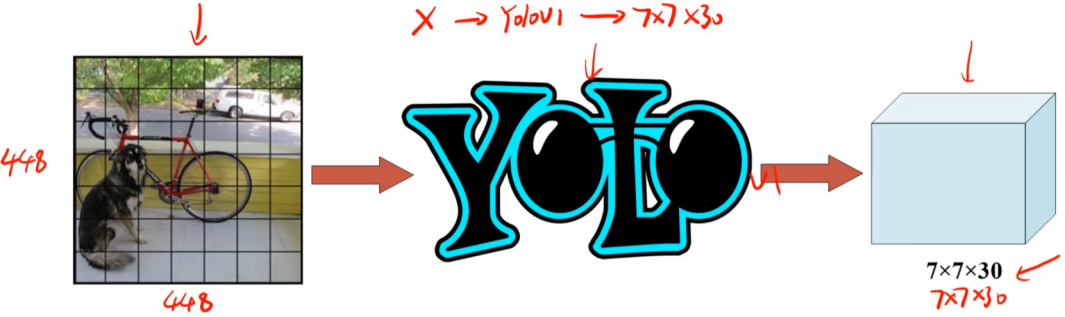 X → YOLOV1 → 7×7×30
448
YOLO
V1
448
7×7×30
7×7×30